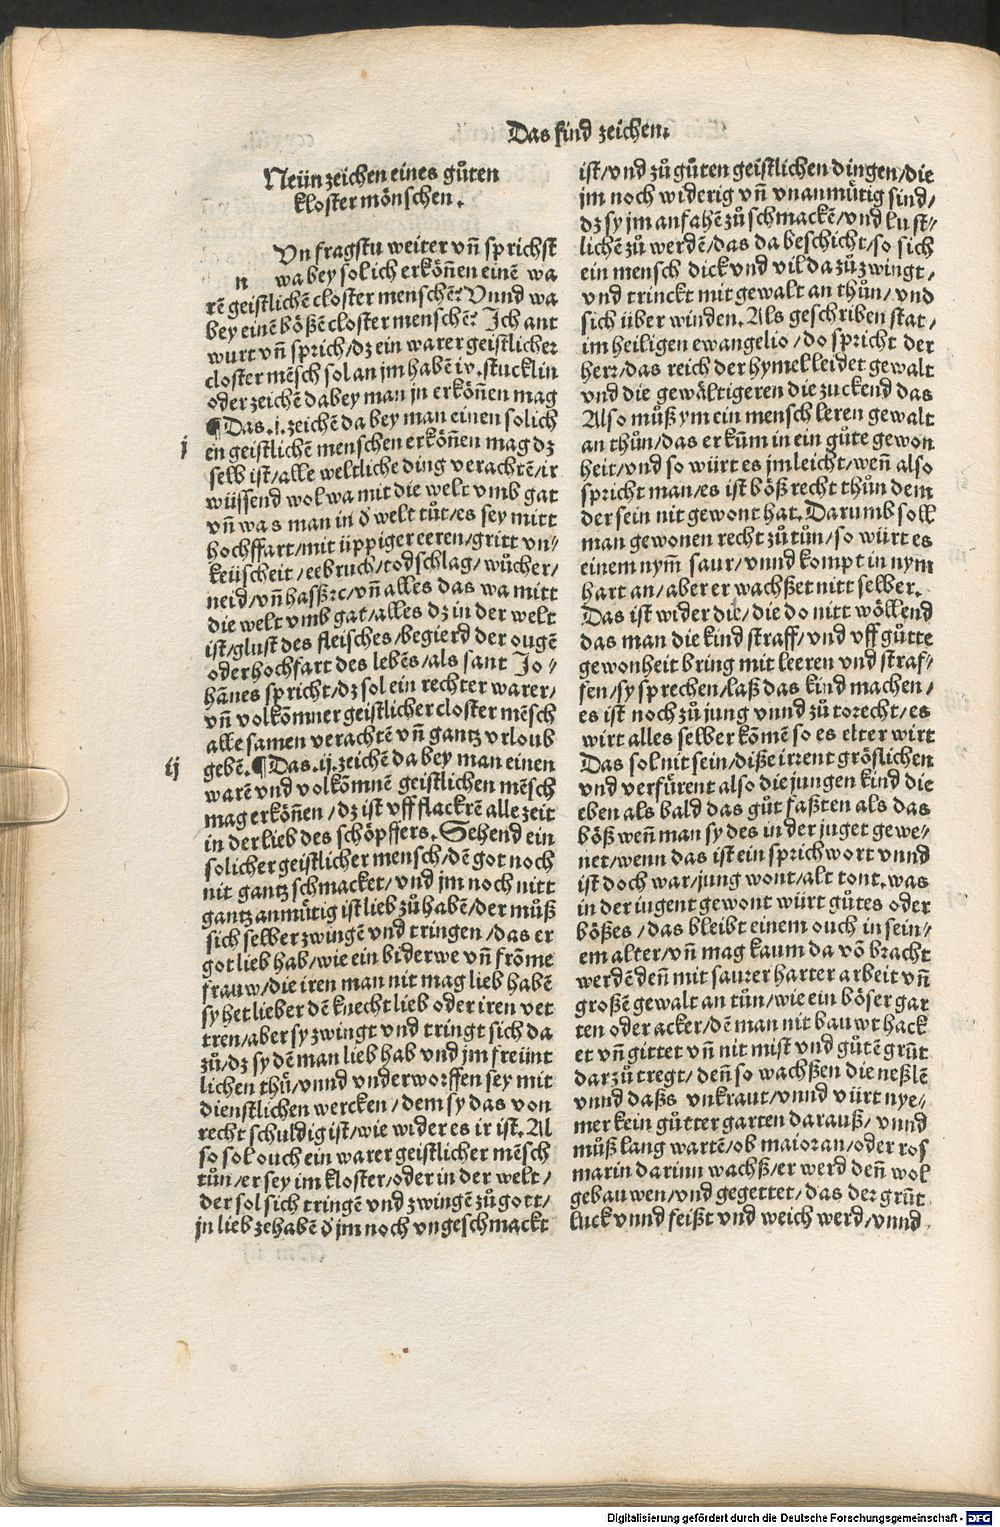 Das sind zeichen.
Neün zeichen eines gůten
kloster mönschen.
n Vn fragstu weiter vñ sprichst
wa bey solich erköñen einẽ wa
rẽ geistlichẽ closter menschẽ? Vnnd wa
bey einẽ bößẽ closter menschẽ? Ich ant
wurt vñ sprich/dz ein warer geistlicher
closter mẽsch sol an jm habẽ ix. stucklin
oder zeichẽ da bey man jn erköñen mag
¶Das .j. zeichẽ da bey man einen solich
j en geistlichẽ menschen erköñen mag dz
selb ist/alle weltliche ding verachtẽ/ir
wüssend wol wa mit die welt vmb gat
vñ was man in d̓ welt tůt/es sey mitt
hochffart/mit üppiger eeren/gritt vn⸗
keüscheit/eebruch/todschlag/wůcher/
neid/vñ hasß ꝛc/vñ alles das wa mitt
die welt vmb gat/alles dz in der welt
ist/glust des fleisches/begierd der ougẽ
oder hochfart des lebẽs/als sant Jo⸗
hãnes spricht/dz sol ein rechter warer/
vñ volkom̃ner geistlicher closter mẽsch
alle samen verachtẽ vñ gantz vrloub
ij gebẽ. ¶Das .ij. zeichẽ da bey man einen
warẽ vnd volkõmnẽ geistlichen mẽsch
mag erköñen/dz ist vff flackrẽ alle zeit
in der lieb des schöpffers. Sehend ein
solicher geistlicher mensch/dẽ got noch
nit gantz schmacket/vnd jm noch nitt
gantz anmütig ist lieb zů habẽ/der můß
sich selber zwingẽ vnd tringen/das er
got lieb hab/wie ein biderwe vñ frõme
frauw/die iren man nit mag lieb habẽ
sy het lieber dẽ knecht lieb oder iren vet
tren/aber sy zwingt vnd tringt sich da
zů/dz sy dẽ man lieb hab vnd jm freünt
lichen thů/vnnd vnderworffen sey mit
dienstlichen wercken/dem sy das von
recht schuldig ist/wie wider es ir ist. Al
so sol ouch ein warer geistlicher mẽsch
tůn/er sey im kloster/oder in der welt/
der sol sich tringẽ vnd zwingẽ zů gott/
jn lieb ze habẽ d̓ jm noch vngeschmackt
ist/vnd zů gůten geistlichen dingen/die
jm noch widerig vñ vnanmütig sind/
dz sy jm anfahẽ zů schmackẽ/vnd lust⸗
lichẽ zů werdẽ/das da beschicht/so sich
ein mensch dick vnd vil da zů zwingt/
vnd trinckt mit gewalt an thůn/vnd
sich über winden. Als geschriben stat/
im heiligen ewangelio/do spricht der
herr/das reich der hymel leidet gewalt
vnd die gewältigeren die zuckend das
Also můß ym ein mensch leren gewalt
an thůn/das er kům in ein gůte gewon
heit/vnd so würt es jm leicht/weñ also
spricht man/es ist böß recht thůn dem
der sein nit gewont hat. Darumb soll
man gewonen recht zů tůn/so würt es
einem nym̃ saur/vnnd kompt in nym
hart an/aber er wachßet nitt selber.
Das ist wider die/die do nitt wöllend
das man die kind straff/vnd vff gůtte
gewonheit bring mit leeren vnd straf⸗
fen/sy sprechen/laß das kind machen/
es ist noch zů jung vnnd zů torecht/es
wirt alles selber kõmẽ so es elter wirt
Das sol nit sein/diße irrent gröslichen
vnd verfürent also die jungen kind die
eben als bald das gůt faßten als das
böß weñ man sy des in der juget gewe⸗
net/wenn das ist ein sprichwort vnnd
ist doch war/jung wont/alt tont. was
in der iugent gewont würt gůtes oder
bößes/das bleibt einem ouch in sein⸗
em alter/vñ mag kaum da võ bracht
werdẽ deñ mit saurer harter arbeit vñ
großẽ gewalt an tůn/wie ein böser gar
ten oder acker/dẽ man nit bauwt hack
et vñ gittet vñ nit mist vnd gůtẽ grũt
dar zů tregt/deñ so wachßen die neßlẽ
vnnd daßs vnkraut/vnnd würt nye⸗
mer kein gůtter garten darauß/vnnd
můß lang wartẽ/ob maioran/oder ros
marin darinn wachß/er werd deñ wol
gebauwen/vnd gegettet/das der grũt
luck vnnd feißt vnd weich werd/vnnd
Digitalisierung gefördert durch die Deutsche Forschungsgemeinschaft - DFG